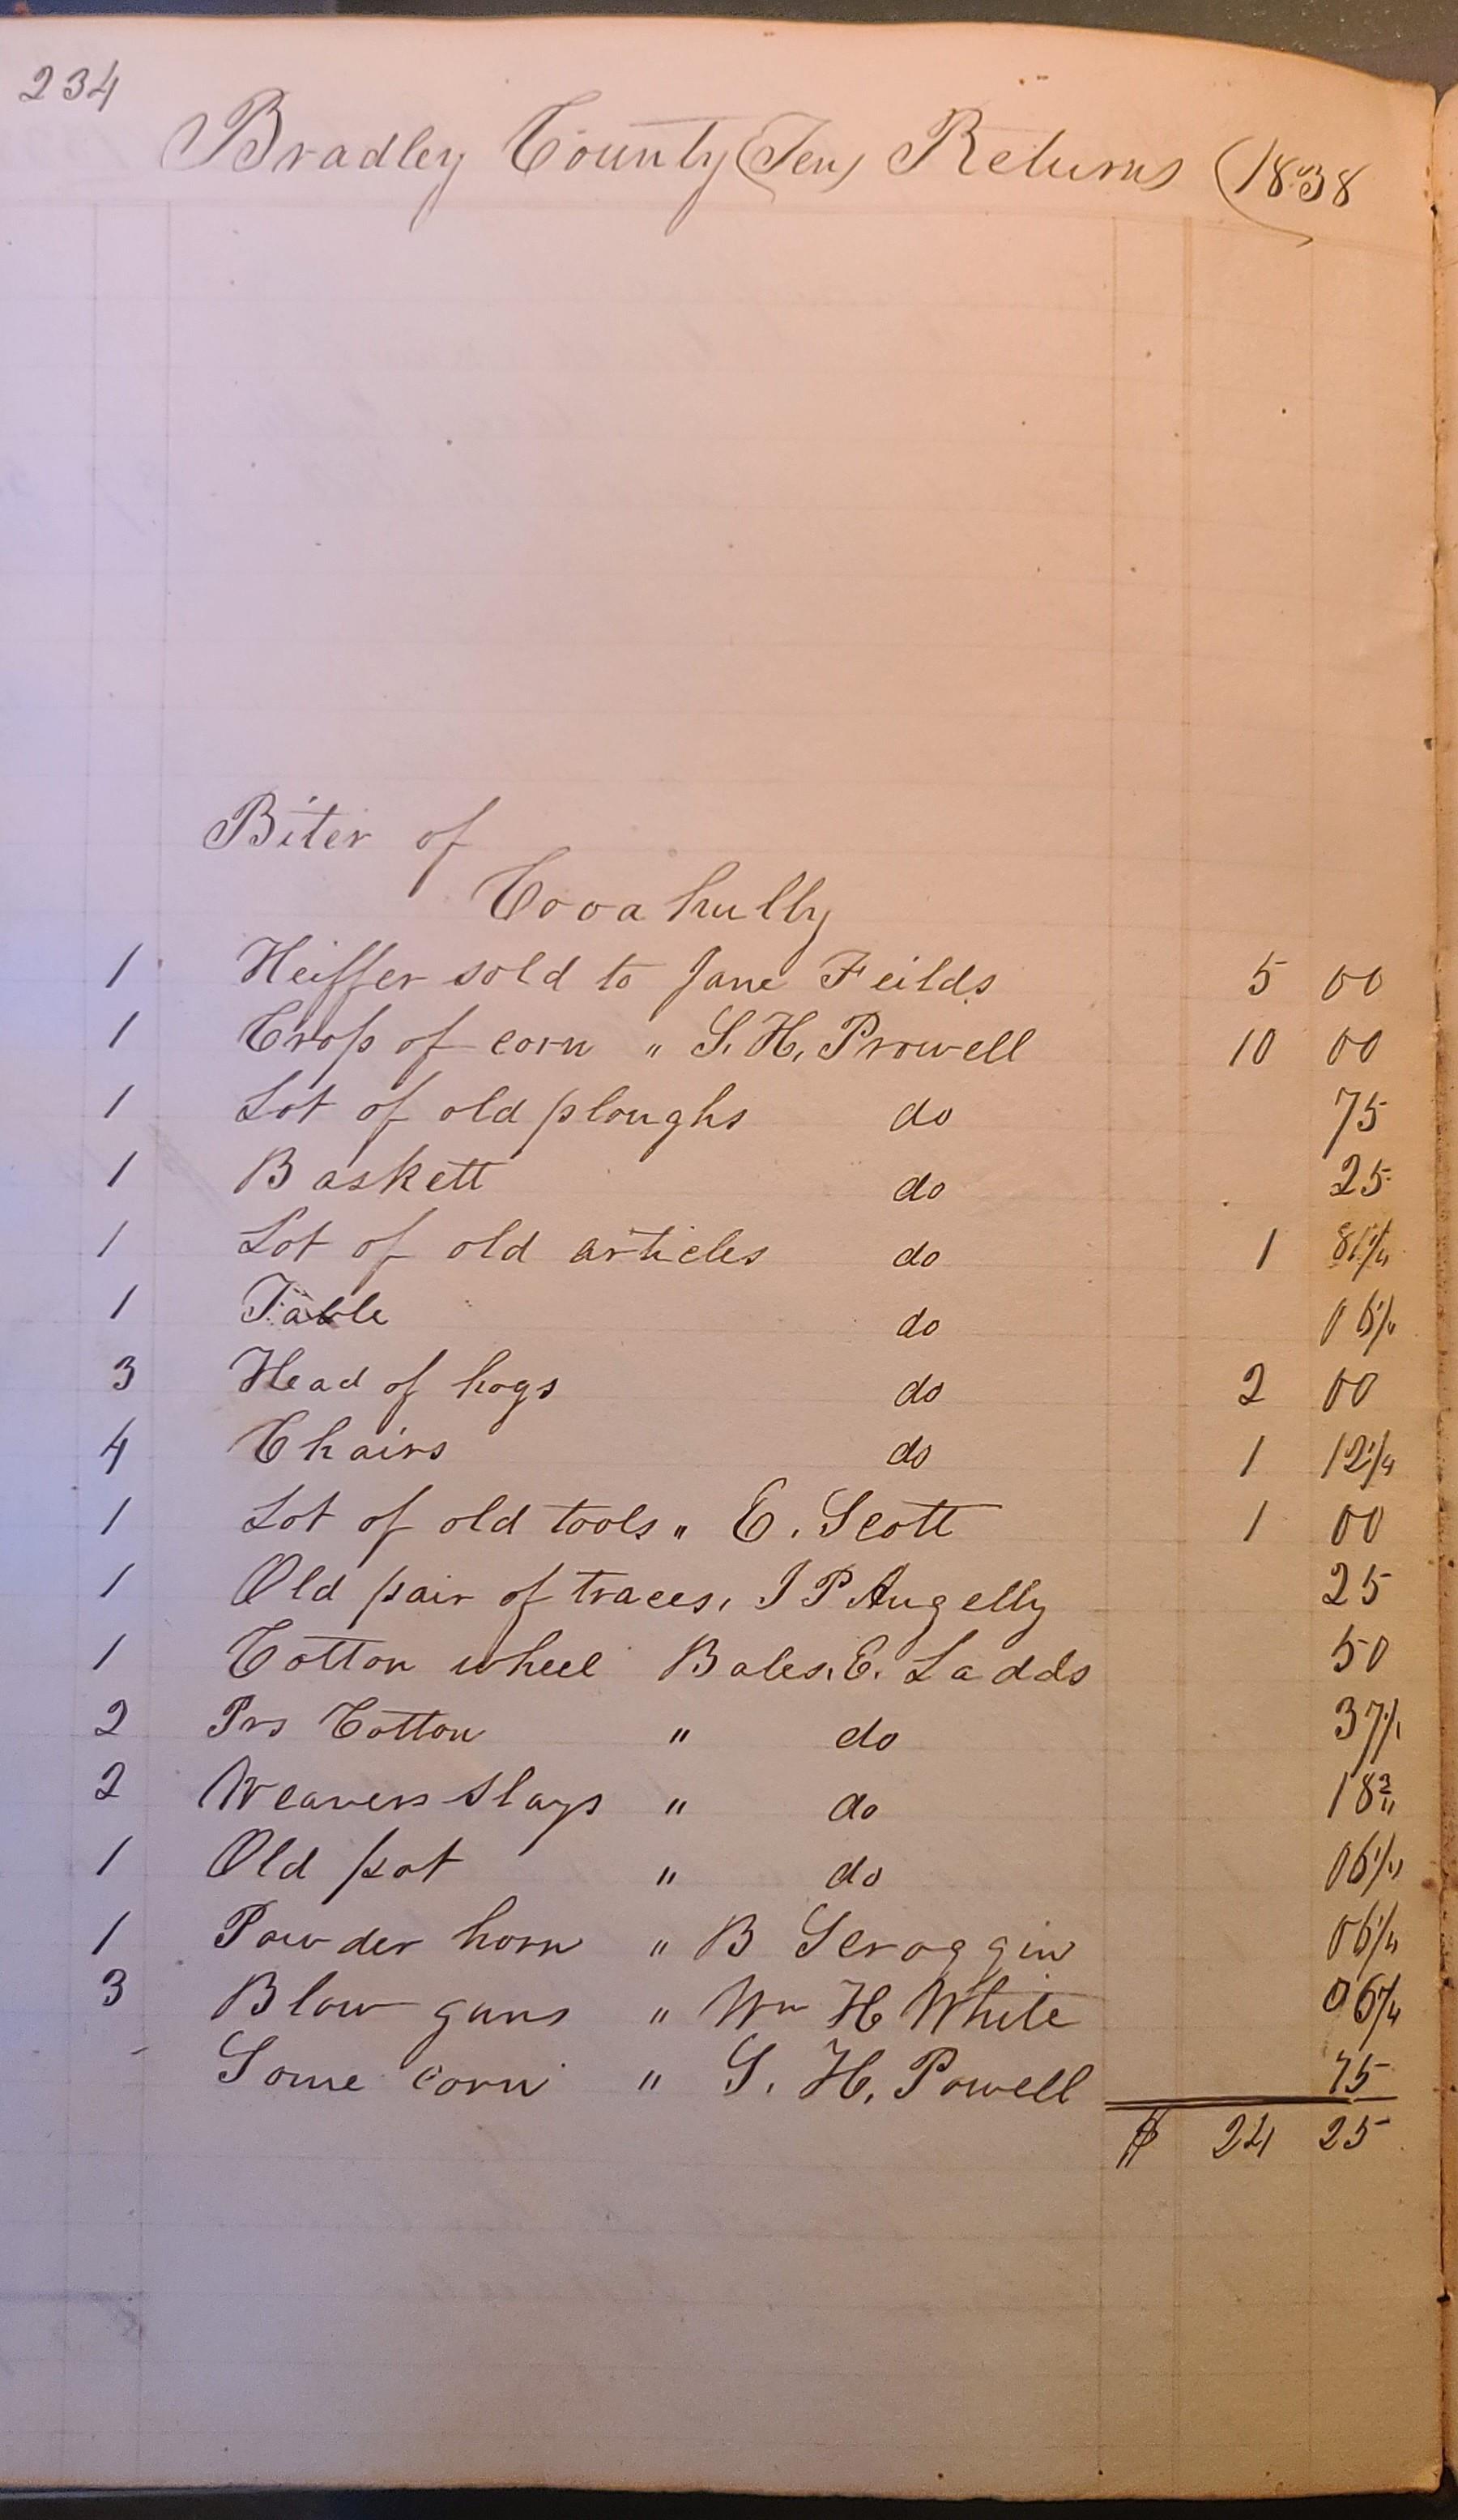 234
Bradley County (Ten) Returns (1838
Biter of
Cooahully
1 Heiffer sold to Jane Feilds 5 00
1 Crop of corn " S. H. Prowell 10 00
1 Lot of old ploughs do 75
1 Baskett do 25
1 Lot of old articles do 1 81 1/4
1 Table do 06 1/4
3 Head of hogs do 2 00
4 Chairs do 1 12 1/4
1 Lot of old tools " E. Scott 1 00
1 Old pair of traces, J P Augelly 25
1 Cotton wheel Bales. E. Ladds 50
2 Prs Cotton " do 37
2 Weavers Slays " do 18 3/4
1 Old pot " do 06 1/4
1 Powder horn " B Scroggin 06 1/4
3 Blow guns " Wm H White 06 1/4
Some corn " S. H. Powell 75
$ 24 25